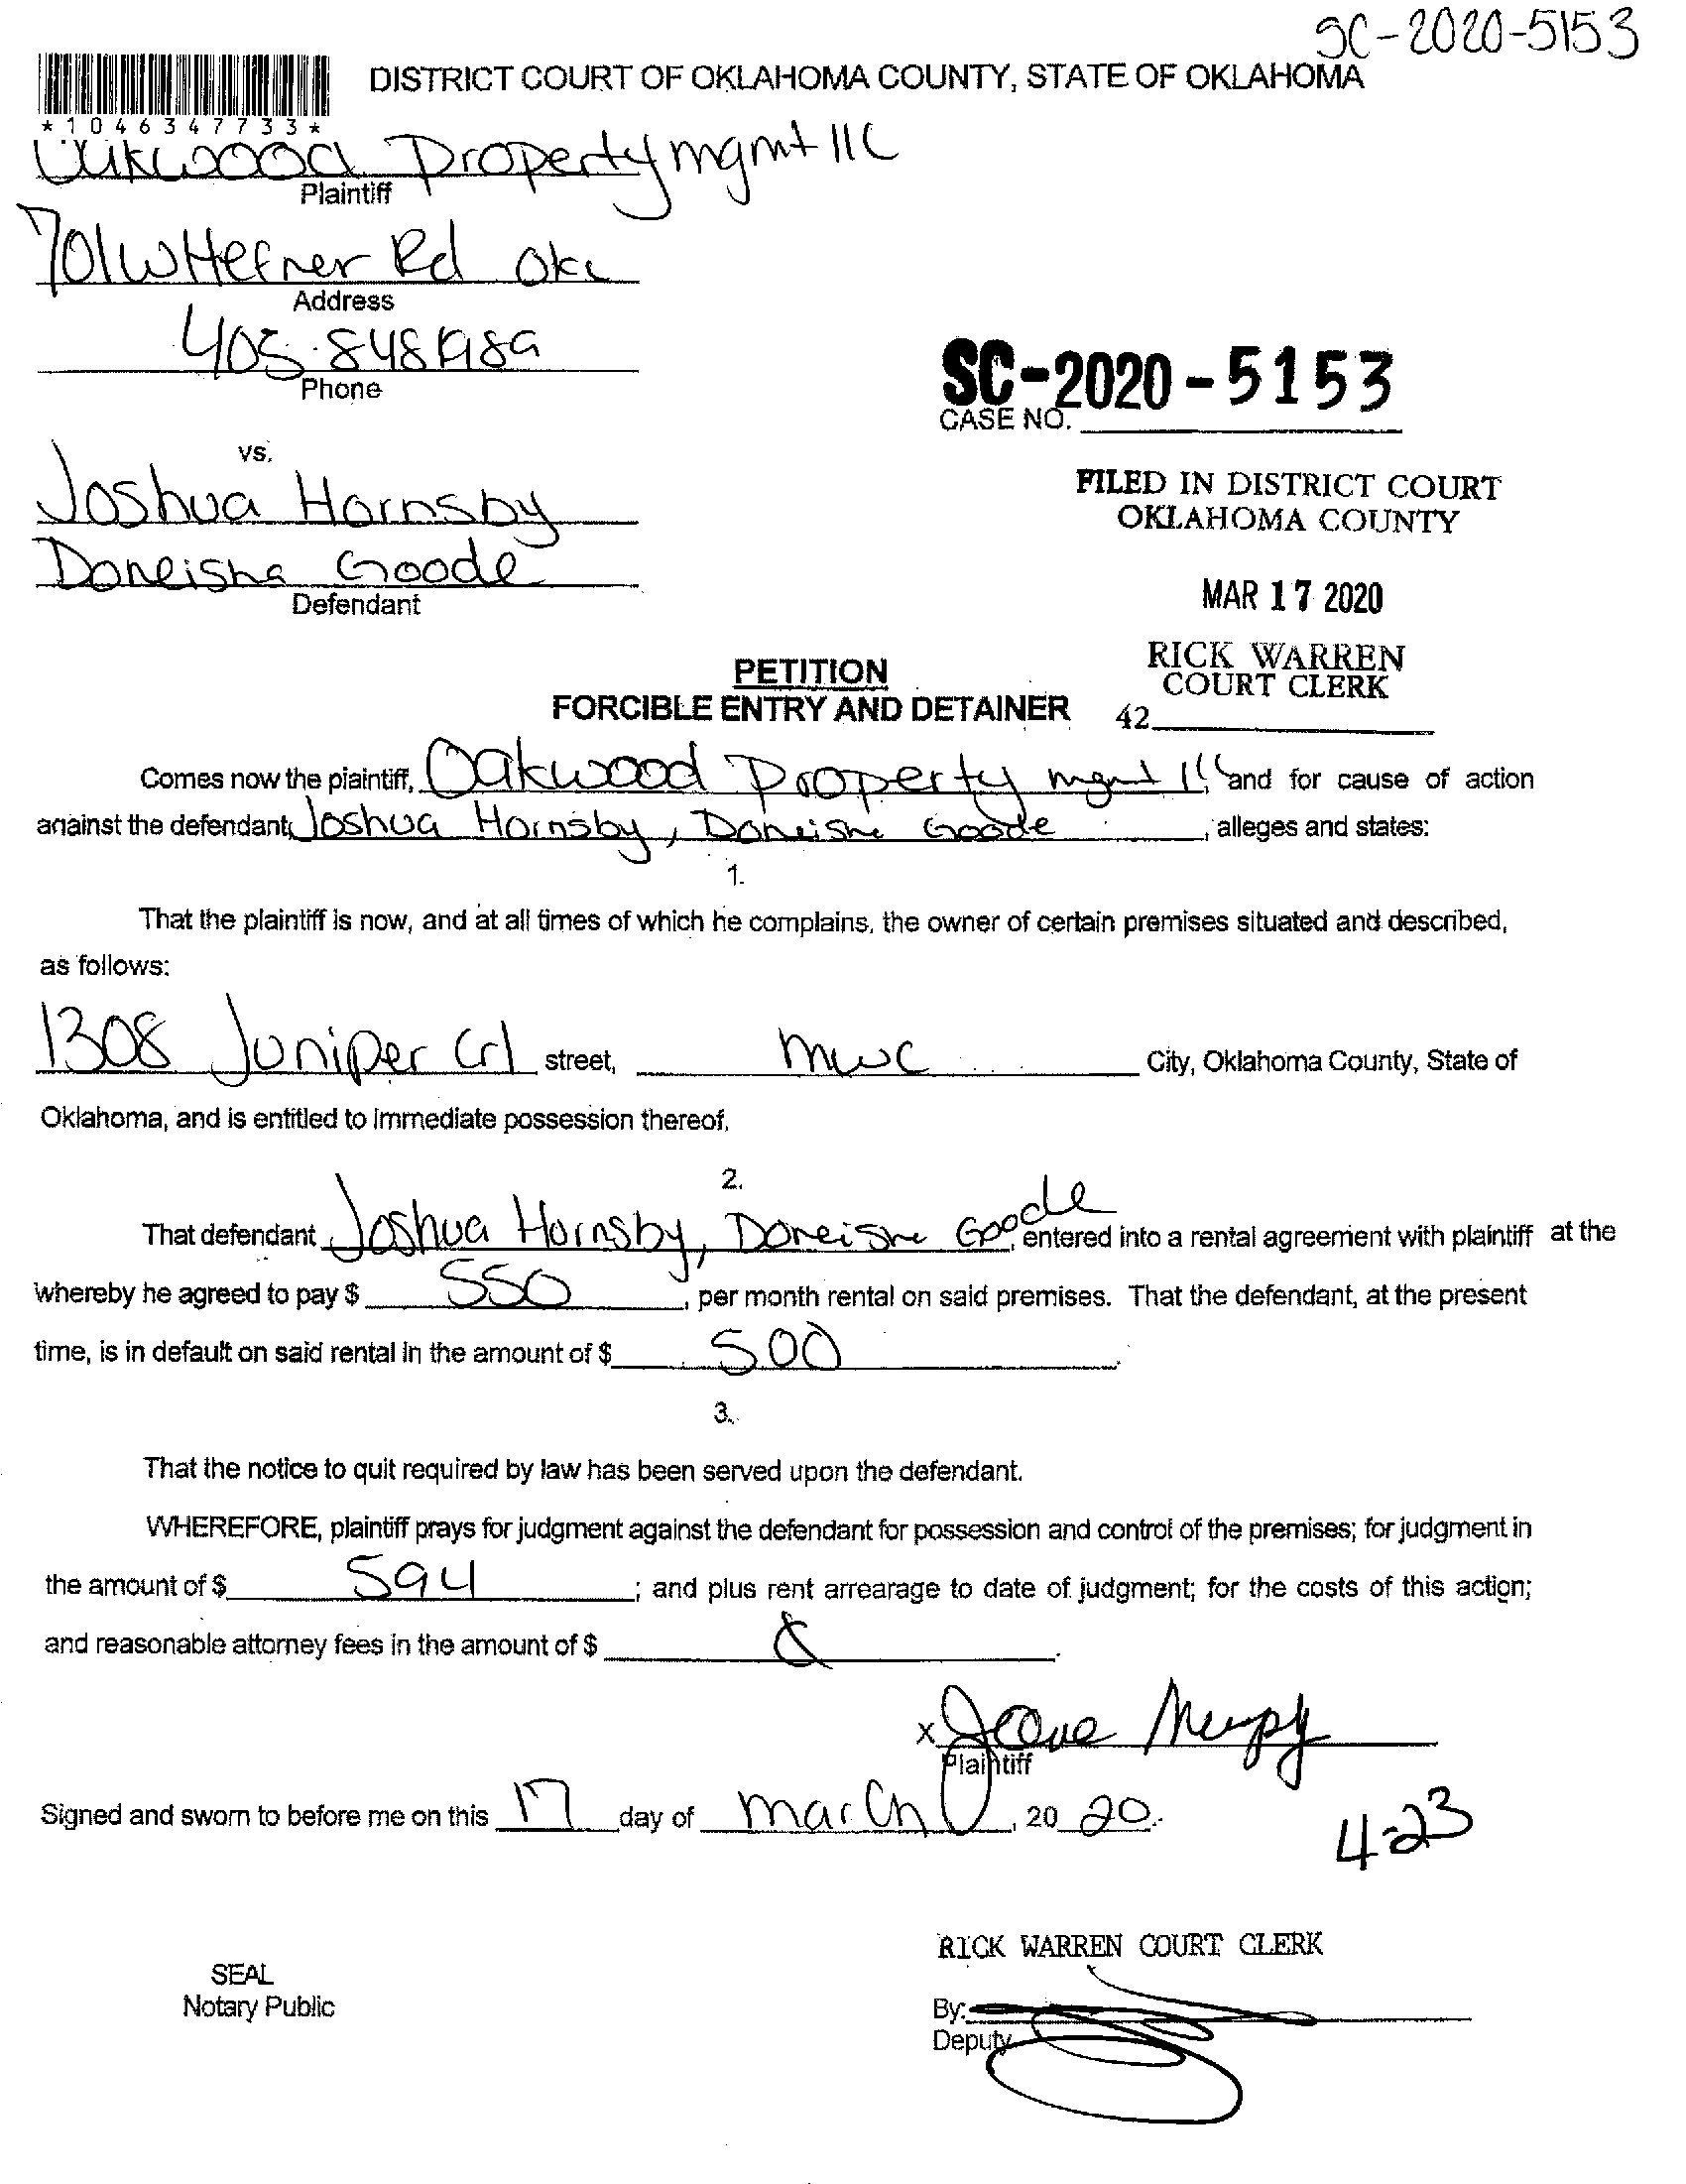 SC-2020-5153
DISTRICT COURT OF OKLAHOMA COUNTY, STATE OF OKLAHOMA
*1046347733*
Oakwood Property mgmt llC
Plaintiff
701 W Hefner Rd Okc
Address
405-8481989
Phone
SC-2020-5153
CASE NO.
vs.
Joshua Hornsby
Doneisha Goode
Defendant
FILED IN DISTRICT COURT
OKLAHOMA COUNTY
MAR 17 2020
RICK WARREN
COURT CLERK
42
PETITION
FORCIBLE ENTRY AND DETAINER
Comes now the plaintiff, Oakwood Property mgmt llC, and for cause of action
against the defendant, Joshua Hornsby, Doneisha Goode, alleges and states:
1.
That the plaintiff is now, and at all times of which he complains, the owner of certain premises situated and described,
as follows:
1308 Juniper Crl street, mwc City, Oklahoma County, State of
Oklahoma, and is entitled to immediate possession thereof.
2.
That defendant Joshua Hornsby, Doneisha Goode, entered into a rental agreement with plaintiff at the
whereby he agreed to pay $ 550, per month rental on said premises. That the defendant, at the present
time, is in default on said rental in the amount of $ 500.
3.
That the notice to quit required by law has been served upon the defendant.
WHEREFORE, plaintiff prays for judgment against the defendant for possession and control of the premises; for judgment in
the amount of $ 594; and plus rent arrearage to date of judgment; for the costs of this action;
and reasonable attorney fees in the amount of $
x
Plaintiff
Signed and sworn to before me on this 17 day of march, 20 20.
4-23
RICK WARREN COURT CLERK
SEAL
Notary Public
By:
Deputy